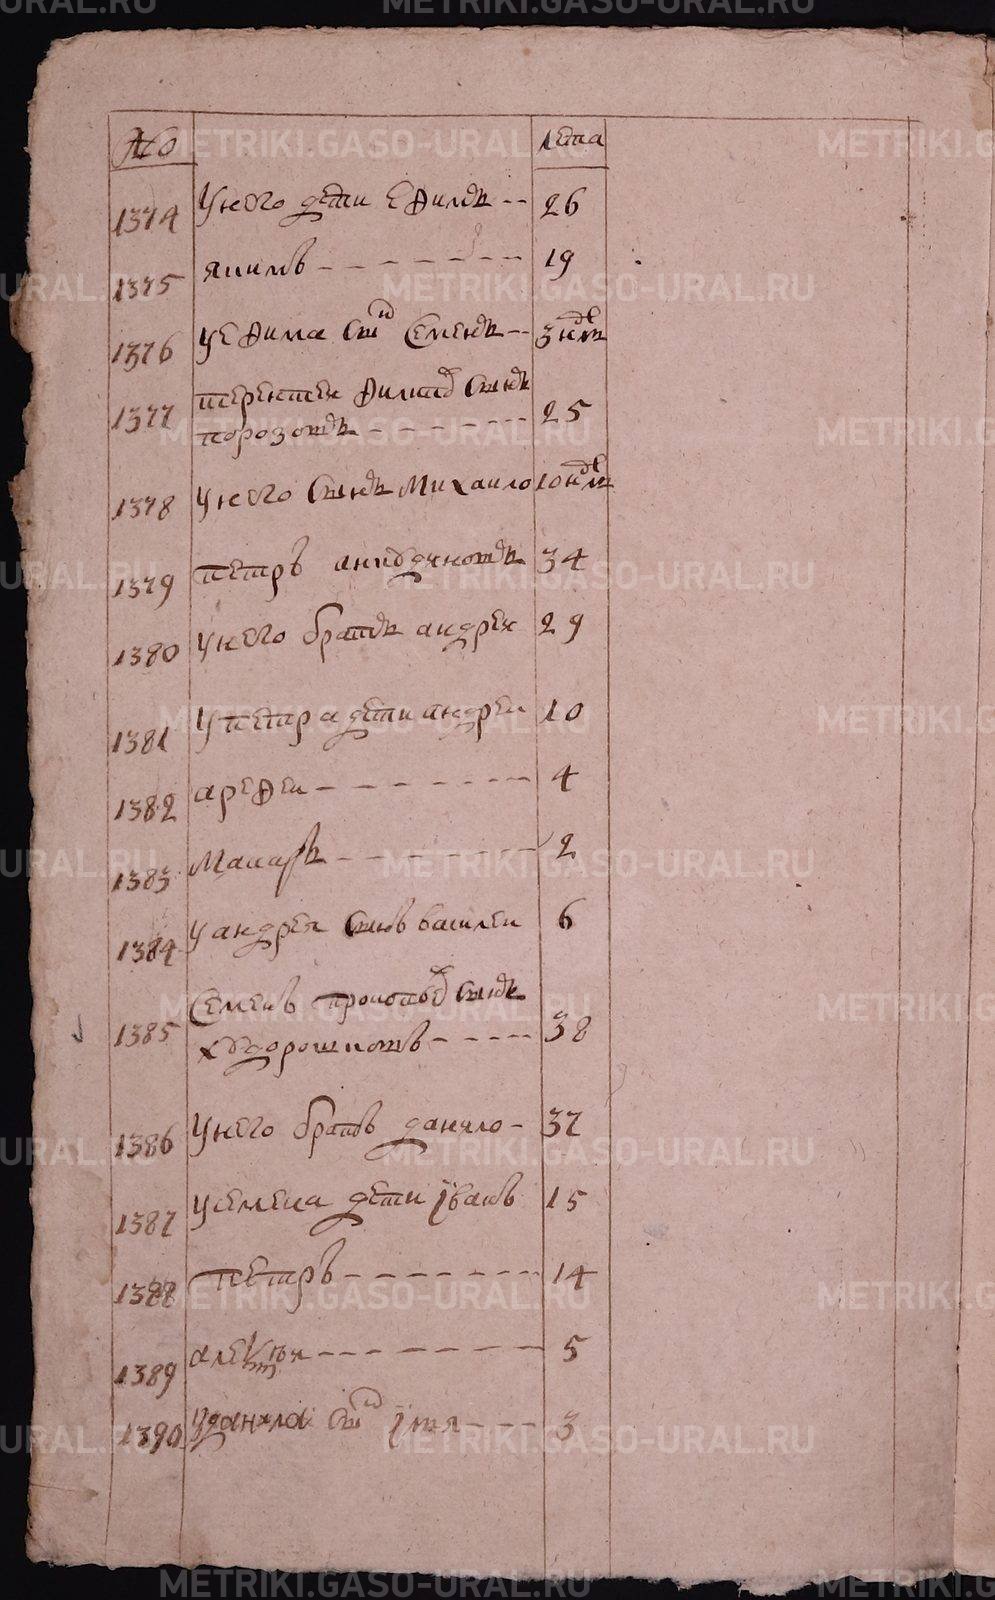 № лета
1374 У него дети Ефимъ -- 26
1375 якимъ 19
1376 У Ефима снъ Семенъ -- 3 недл
1377 терентеи филипов сынъ
порозовъ 25
1378 У него сынъ Михаило 10 недл
1379 петръ 34
1380 У него братъ андреи 29
1381 У петра дети андреи 10
1382 арефеи 4
1383 Макаръ 2
1384 У андрея сынъ василеи 6
1385 Семенъ прокопьев сынъ
худорошковъ 38
1386 У него братъ данило - 37
1387 У семена дети іванъ 15
1388 петръ 14
1389 алексеи 5
1390 У данила снъ їлья 3
METRIKI.GASO-URAL.RU